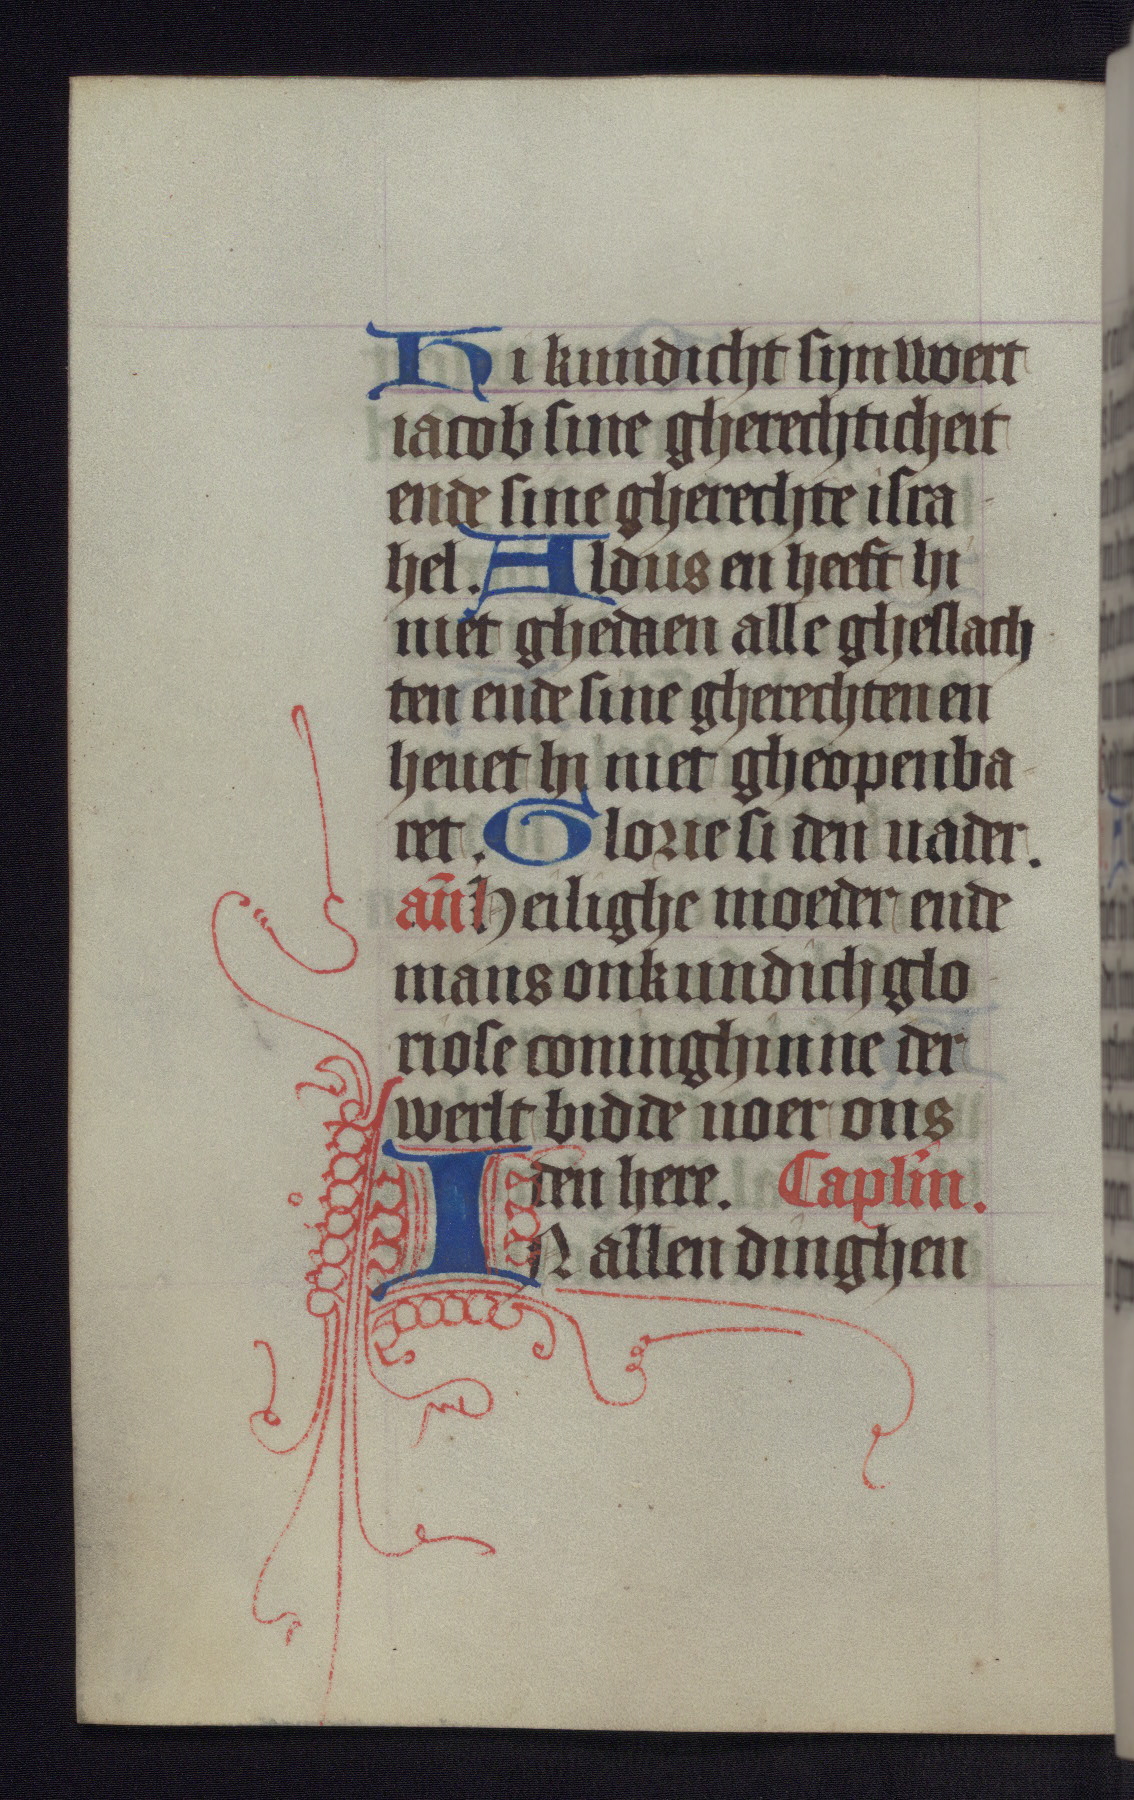 Hi kundicht sijn woert
iacob sine gherechticheit
ende sine gherechte isra
hel. Aldus en heeft hi
niet ghedaen alle gheslach
ten ende sine gherechten en
heuet hi niet gheopenba
ret. Glorie si den uader.
añ Heilighe moeder ende
mans onkundich glo
riose coninghinne der
werlt bidde uoer ons
den here. Caplīn.
IN allen dinghen